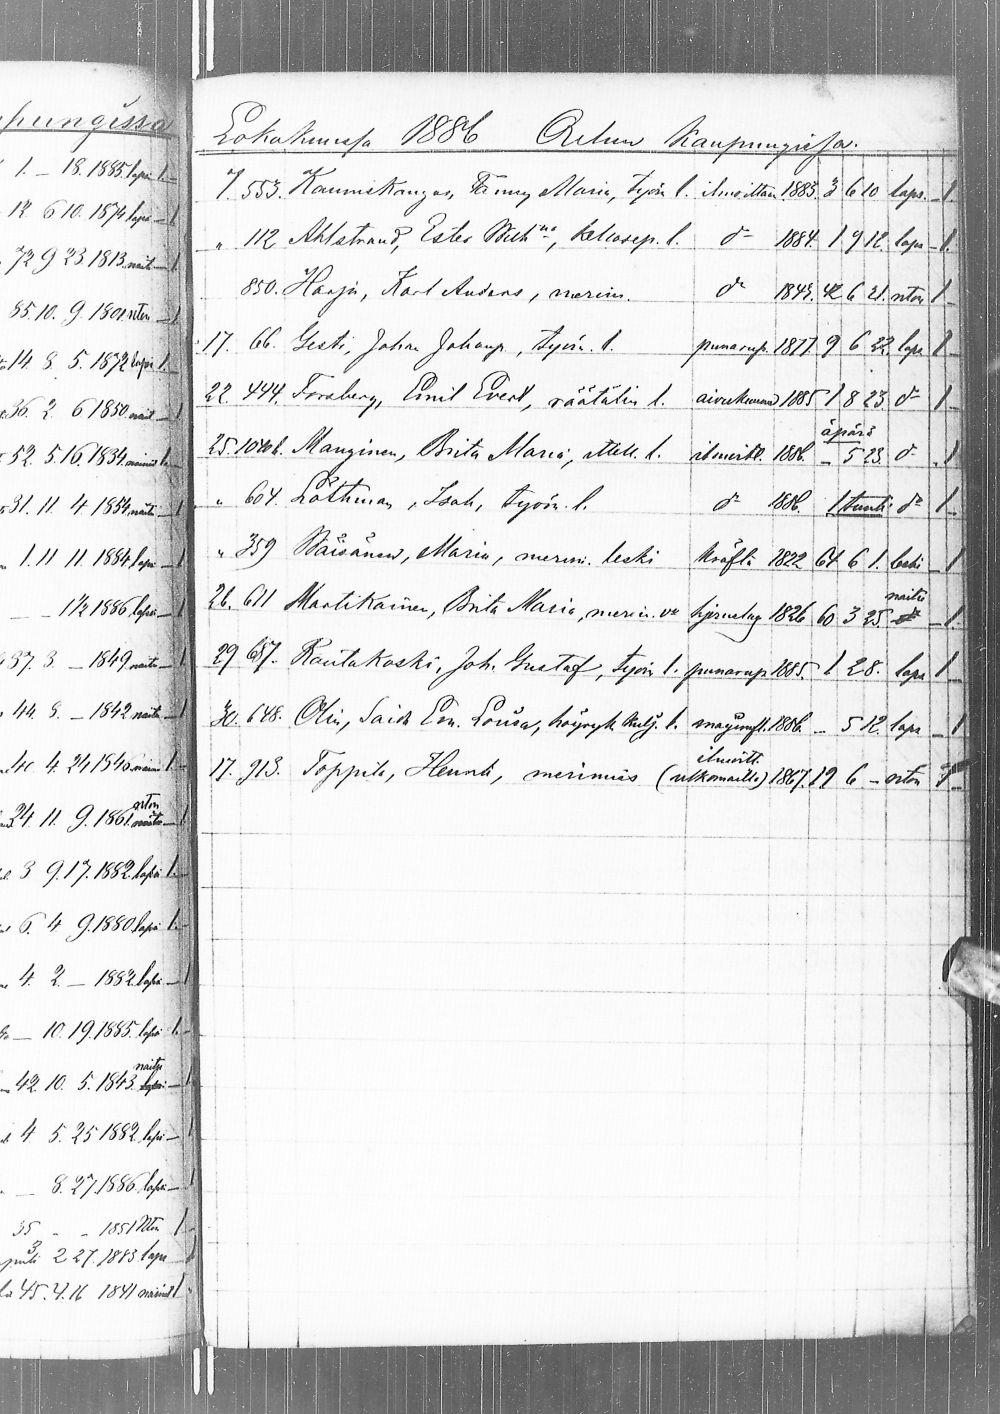 pungissa
1. – 18. 1885 lapsi 1.
12 6 10. 1874 lapsi – 1
72 9 23. 1813. naitu – 1.
85. 10. 9. 1801. nton – 1
14. 8. 5. 1872 lapsi 1.
36. 2. 6 1850 nait – 1
52. 5. 16. 1834.
31. 11. 4 1854. naitu – 1
1. 11 11. 1884. lapsi – 1
– – 1½ 1886. lapsi – 1
37. 3. – 1849 naitu – 1
44. 8. – 1842 naitu – 1
4. 24 1846
nton
24. 11. 9. 1861. naitu – 1
3 9. 17. 1882. lapsi 1.
6. 4 9. 1880. lapsi 1.
4. 2. – 1882. lapsi – 1
– 10. 19. 1885. lapsi 1.
naitu
42. 10. 5. 1843. lapsi – 1
4. 5. 25 1882. lapsi – 1
– 8. 27. 1886. lapsi – 1
35 - - 1851 Nton 1
3 2 27. 1883 lapse
45. 4. 16 1841 1
Lokakuussa 1886 Oulun Kaupungissa.
7. 553. Kauniskangas, Fanny Maria, työm l. ilmoittam. 1883. 3 6 10 laps. – 1.
" 112 Ahlstrand, Ester Wilhna, kellosep. l. do 1884. 1 9 12. laps – 1.
850. Harju, Karl Anders, merim. do 1843. 42 6 21. nton 1 –
17. 66. Gesti, Johan Johansp, työm. l. punarup. 1877 9 6 22 laps 1 –
22. 444. Forsberg, Emil Evert, räätälin l. aivokuume 1885 1 8 23. do 1 –
äpärä
25. 1040 b. Manginen, Brita Maria, itsell. l. ilmoitt. 1886. – 5 23. do . 1
" 604. Löthman, Isak, työm. l. do 1886. 1 tunti do 1 –
" 359 Wäisänen, Maria, merim. leski kräfta 1822 64 6 1. leski – 1
naitu
26. 611 Martikainen, Brita Maria, merim. va hjernslag 1826 60 3 25. do – 1.
29 657. Rautakoski, Joh. Gustaf, työm l. punarup. 1885. 1 2 8. laps 1 –
30. 648. Olin, Saida Em. Lovisa, höyryk. kulj. l. 1886. – 5 12. laps – 1
ilmoitt.
17. 913. Toppila, Henrik, merimies (ulkomailla) 1867. 19 6 – nton 1 –